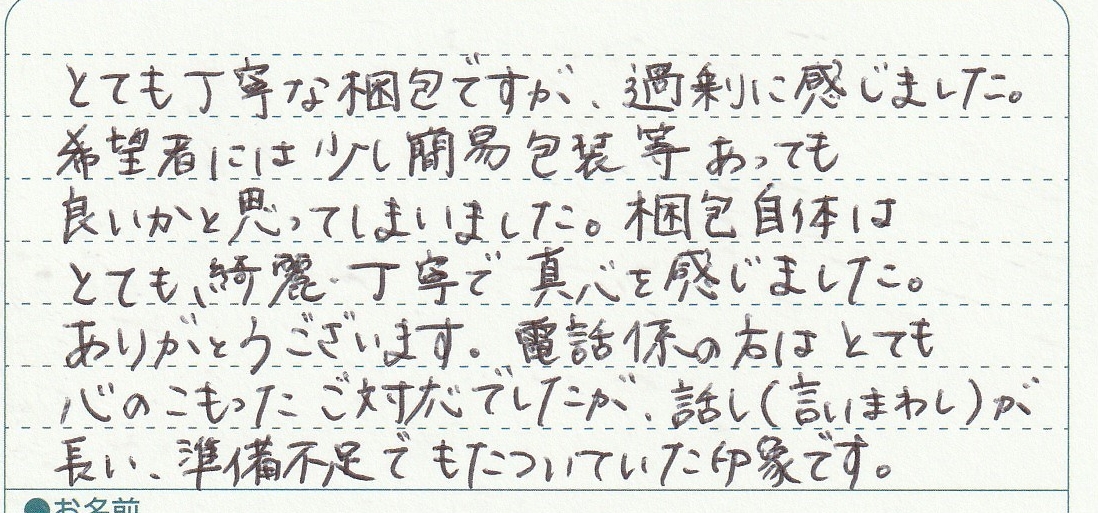 とても丁寧な梱包ですが、過剰に感じました。
希望者には少し簡易包装等あっても
良いかと思ってしまいました。梱包自体は
とても、綺麗・丁寧で真心を感じました。
ありがとうございます。電話係の方はとても
心のこもったご対応でしたが、話し(言いまわし)が
長い、準備不足でもたついていた印象です。
●お名前